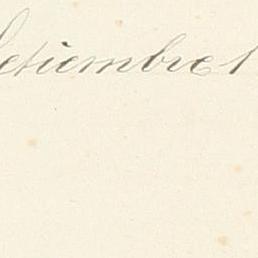 Setiembre 1